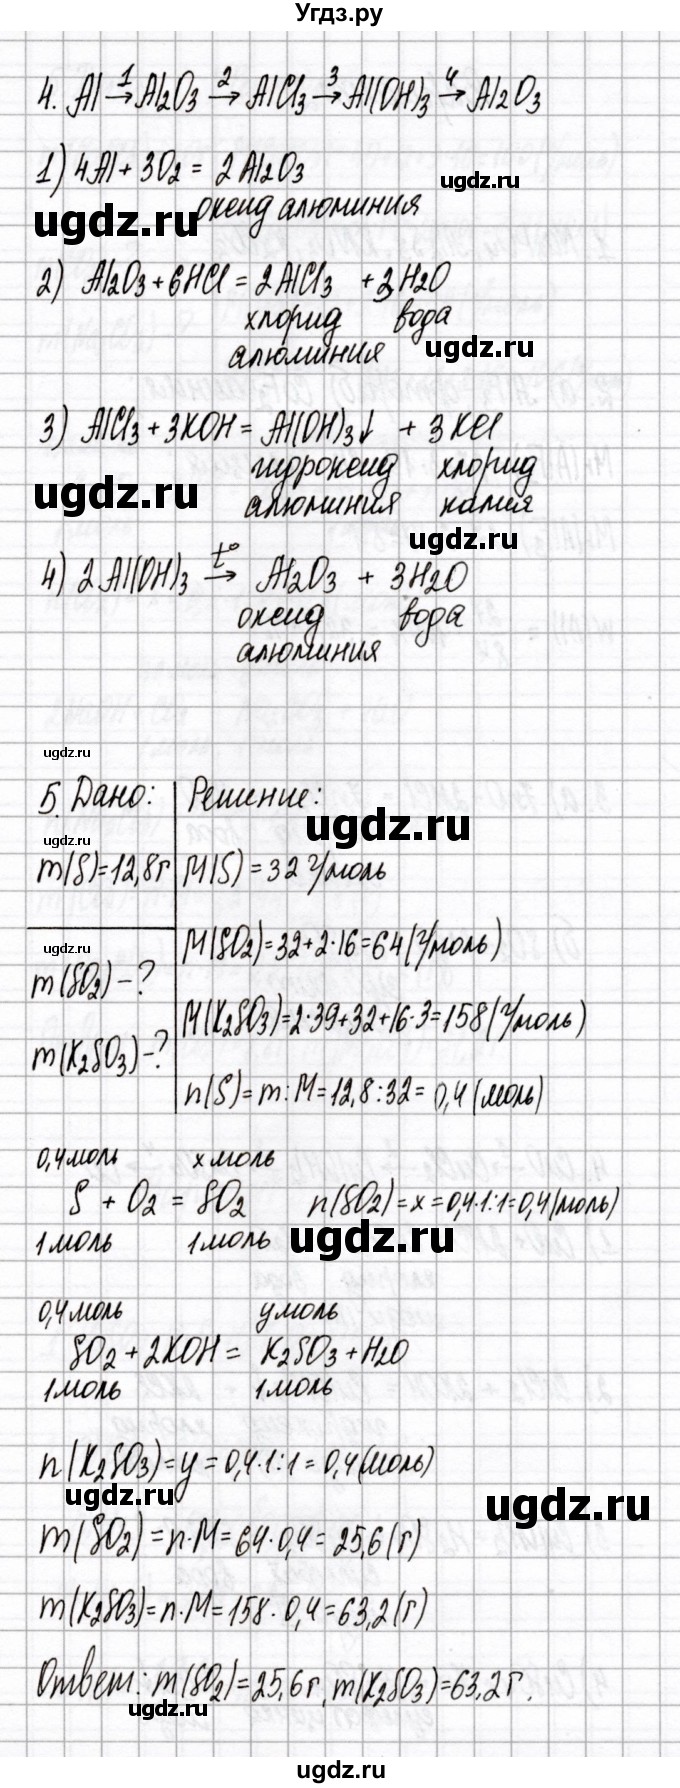 Угдз.ру
4. Al →1 Al2O3 →2 AlCl3 →3 Al(OH)3 →4 Al2O3
1) 4Al + 3O2 = 2Al2O3
ugdz.ru
оксид алюминия
ugdz.ru
2) Al2O3 + 6HCl = 2AlCl3 + 3H2O
хлорид вода
алюминия
ugdz.ru
3) AlCl3 + 3KOH = Al(OH)3↓ + 3KCl
гидроксид хлорид
алюминия калия
ugdz.ru
ugdz.ru
4) 2Al(OH)3 t°→ Al2O3 + 3H2O
оксид вода
алюминия
ugdz.ru
5. Дано: Решение:
ugdz.ru
ugdz.ru
m(S)=12,8г M(S)=32 г/моль
ugdz.ru
M(SO2)=32+2·16=64(г/моль)
m(SO2)-?
M(K2SO3)=2·39+32+16·3=158(г/моль)
m(K2SO3)-?
n(S)=m:M=12,8:32=0,4(моль)
0,4моль x моль
S + O2 = SO2 n(SO2)=x=0,4·1:1=0,4(моль)
1моль 1моль
ugdz.ru
0,4моль y моль
SO2+2KOH= K2SO3+H2O
1моль 1моль
n(K2SO3)=y=0,4·1:1=0,4(моль)
ugdz.ru
ugdz.ru
m(SO2)=n·M=64·0,4=25,6(г)
m(K2SO3)=n·M=158·0,4=63,2(г)
Ответ: m(SO2)=25,6г, m(K2SO3)=63,2г.
ugdz.ru
ugdz.ru